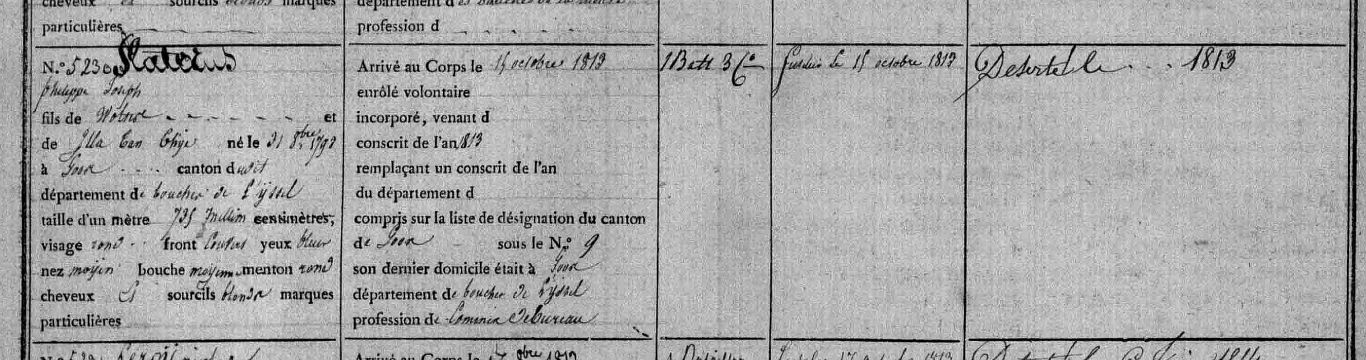 cheveux et sourcils blonds marques
particulières
profession d
N.º 5230 Platerus
philippe Joseph
fils de et
de né le 31 8bre 1793
à Goor canton dudit
département de bouches de l'yssel
taille d'un mètre 735 millim centimètres,
visage rond front yeux bleus
nez moyen bouche moyenne menton rond
cheveux et sourcils blonds marques
particulières
Arrivé au Corps le 15 octobre 1813
enrôlé volontaire
incorporé, venant d
conscrit de l'an 1813
remplaçant un conscrit de l'an
du département d
compris sur la liste de désignation du canton
de Goor sous le N.º 9
son dernier domicile était à Goor
département de bouches de l'yssel
profession de Commis de bureau
1 Batt 3 Cie
fusilier le 15 octobre 1813
Deserté le 1813
Arrivé au Corps le 17 8bre 1813